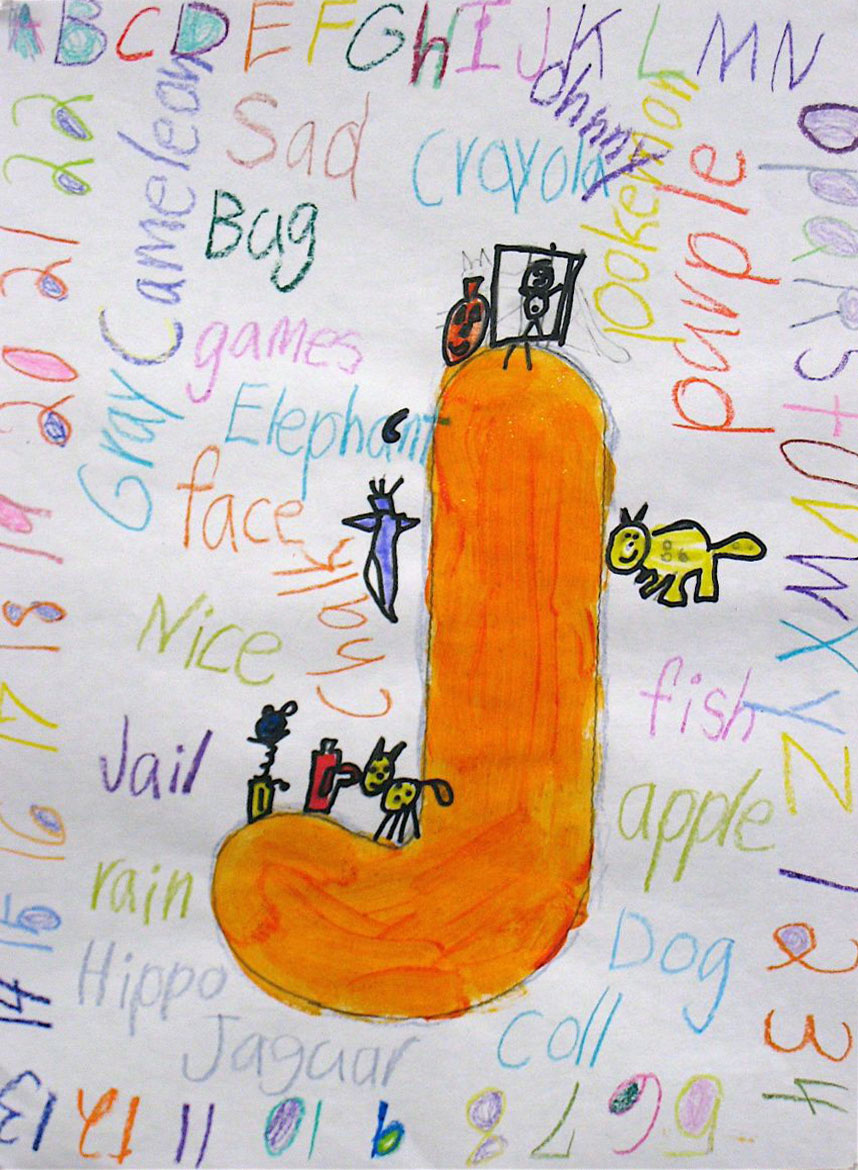 A B C D E F G h I J K L M N
O p q R S t U V W X Y Z 1 2 3 4
5 6 7 8 9 10 11 12 13
14 15 16 17 18 19 20 21 22
Cameleon
Sad
ohnny
Crayola
purple
Bug
games
Gray
Elephant
face
Nice
Jail
fish
apple
rain
Hippo
Dog
Jaguar
Coll